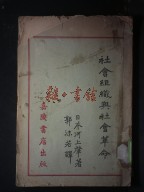 社會組織與社會革命
日本河上肇著
郭沫若譯
嘉陵書店出版